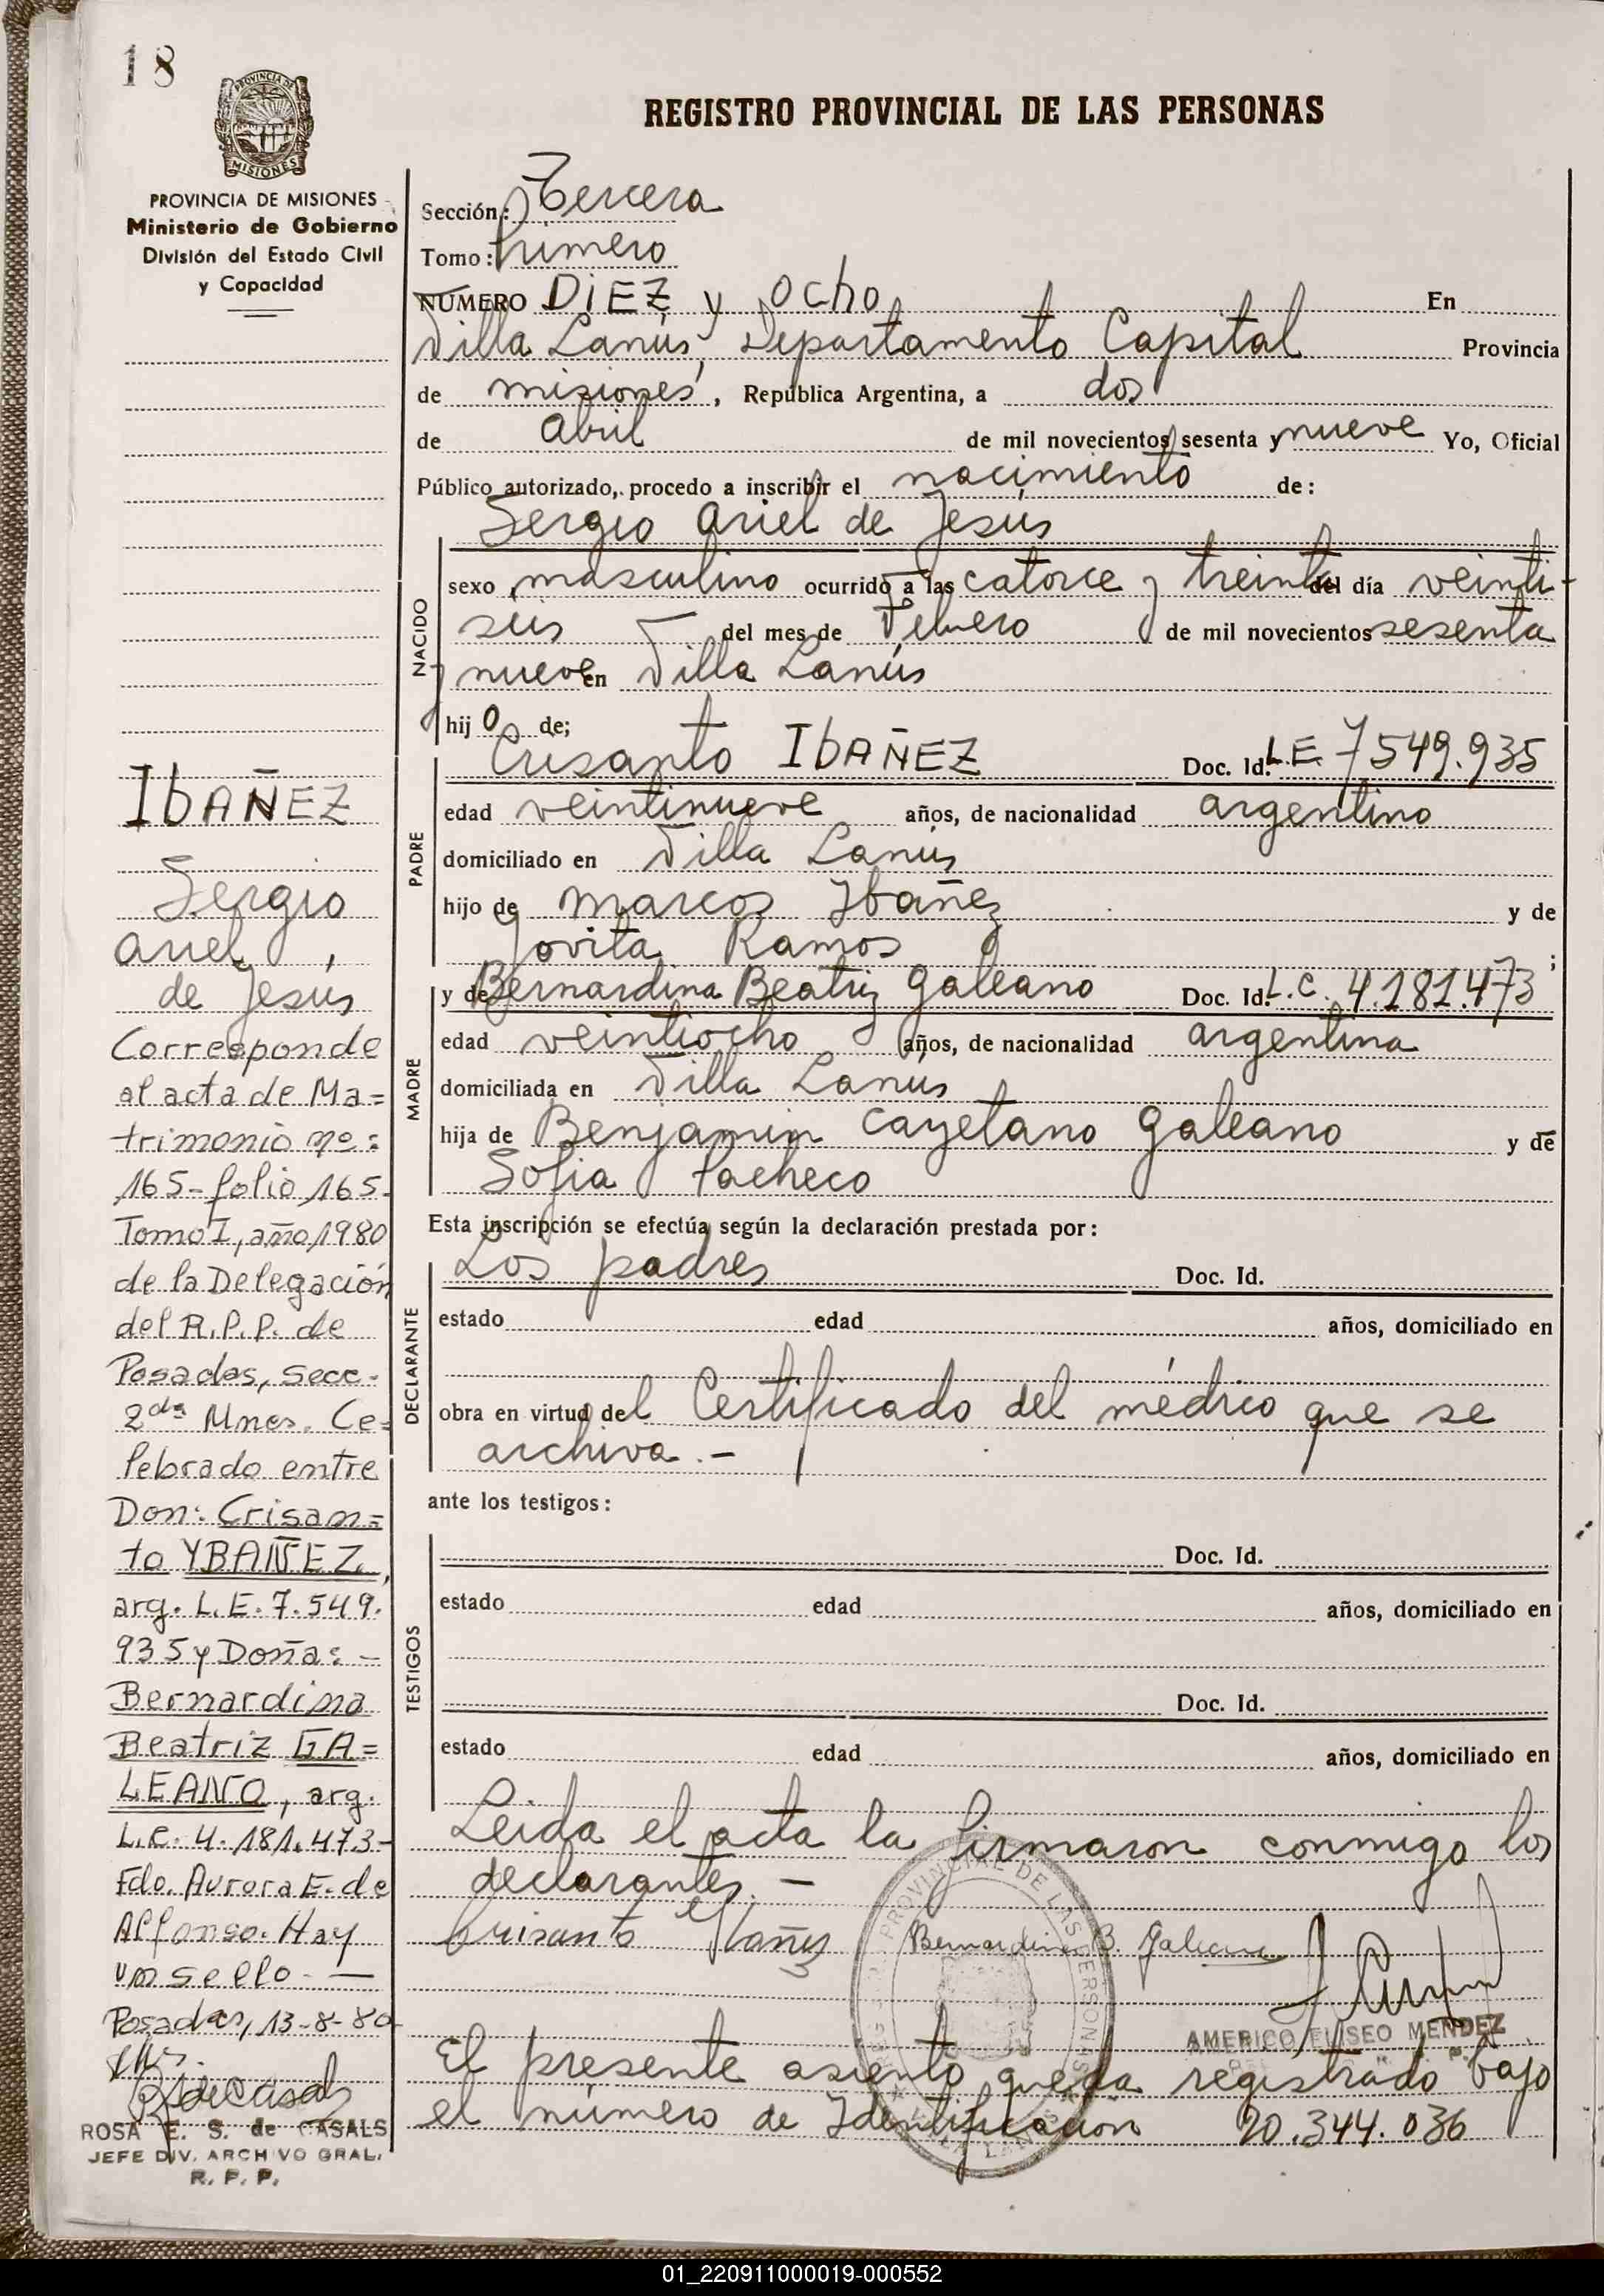 18
PROVINCIA DE
MISIONES
PROVINCIA DE MISIONES
Ministerio de Gobierno
División del Estado Civil
y Capacidad
IbAÑEZ
Sergio
Ariel
de Jesús
Corresponde
al acta de Ma=
trimonio nº:
165-folio 165-
Tomo I, año 1980
de la Delegación
del R.P.P. de
Posadas, Secc-
2da Mnes. Ce=
lebrado entre
Don: Crisan=
to YBAÑEZ,
arg. L.E. 7.549.
935 y Doña: -
Bernardina
Beatriz GA=
LEANO, arg.
L.C. 4.181.473-
Fdo. Aurora E. de
Alfonso. Hay
un sello. —
Posadas, 13-8-80
ROSA E. S. de CASALS
JEFE DIV. ARCHIVO GRAL.
R. P. P.
REGISTRO PROVINCIAL DE LAS PERSONAS
Sección: Tercera
Tomo: Primero
NUMERO DIEZ y ocho En
Villa Lanús, Departamento Capital Provincia
de misiones, República Argentina, a dos
de Abril de mil novecientos sesenta y nueve Yo, Oficial
Público autorizado, procedo a inscribir el nacimiento de:
Sergio Ariel de Jesús
NACIDO
sexo masculino ocurrido a las catorce y treinta del día veinti-
séis del mes de Febrero de mil novecientos sesenta
y nueve en Villa Lanús
hij o de;
PADRE
Crisanto IbAÑEZ Doc. Id. L.E. 7549.935
edad veintinueve años, de nacionalidad argentino
domiciliado en Villa Lanús
hijo de Marcos Ibañez y de
Jovita Ramos ;
MADRE
y de Bernardina Beatriz Galeano Doc. Id. L.C. 4.181.473
edad veintiocho años, de nacionalidad argentina
domiciliada en Villa Lanús
hija de Benjamin Cayetano Galeano y de
Sofia Pacheco
Esta inscripción se efectúa según la declaración prestada por:
DECLARANTE
Los padres Doc. Id.
estado edad años, domiciliado en
obra en virtud del Certificado del médico que se
archiva.-
ante los testigos:
TESTIGOS
Doc. Id.
estado edad años, domiciliado en
Doc. Id.
estado edad años, domiciliado en
Leida el acta la firmaron conmigo los
declarantes. -
Crisanto Ibañez Bernardina B. Galeano
AMERICO ELISEO MENDEZ
PROVINCIAL DE LAS PERSONAS
El presente asiento queda registrado bajo
el número de Identificación 20.344.036
01_220911000019-000552